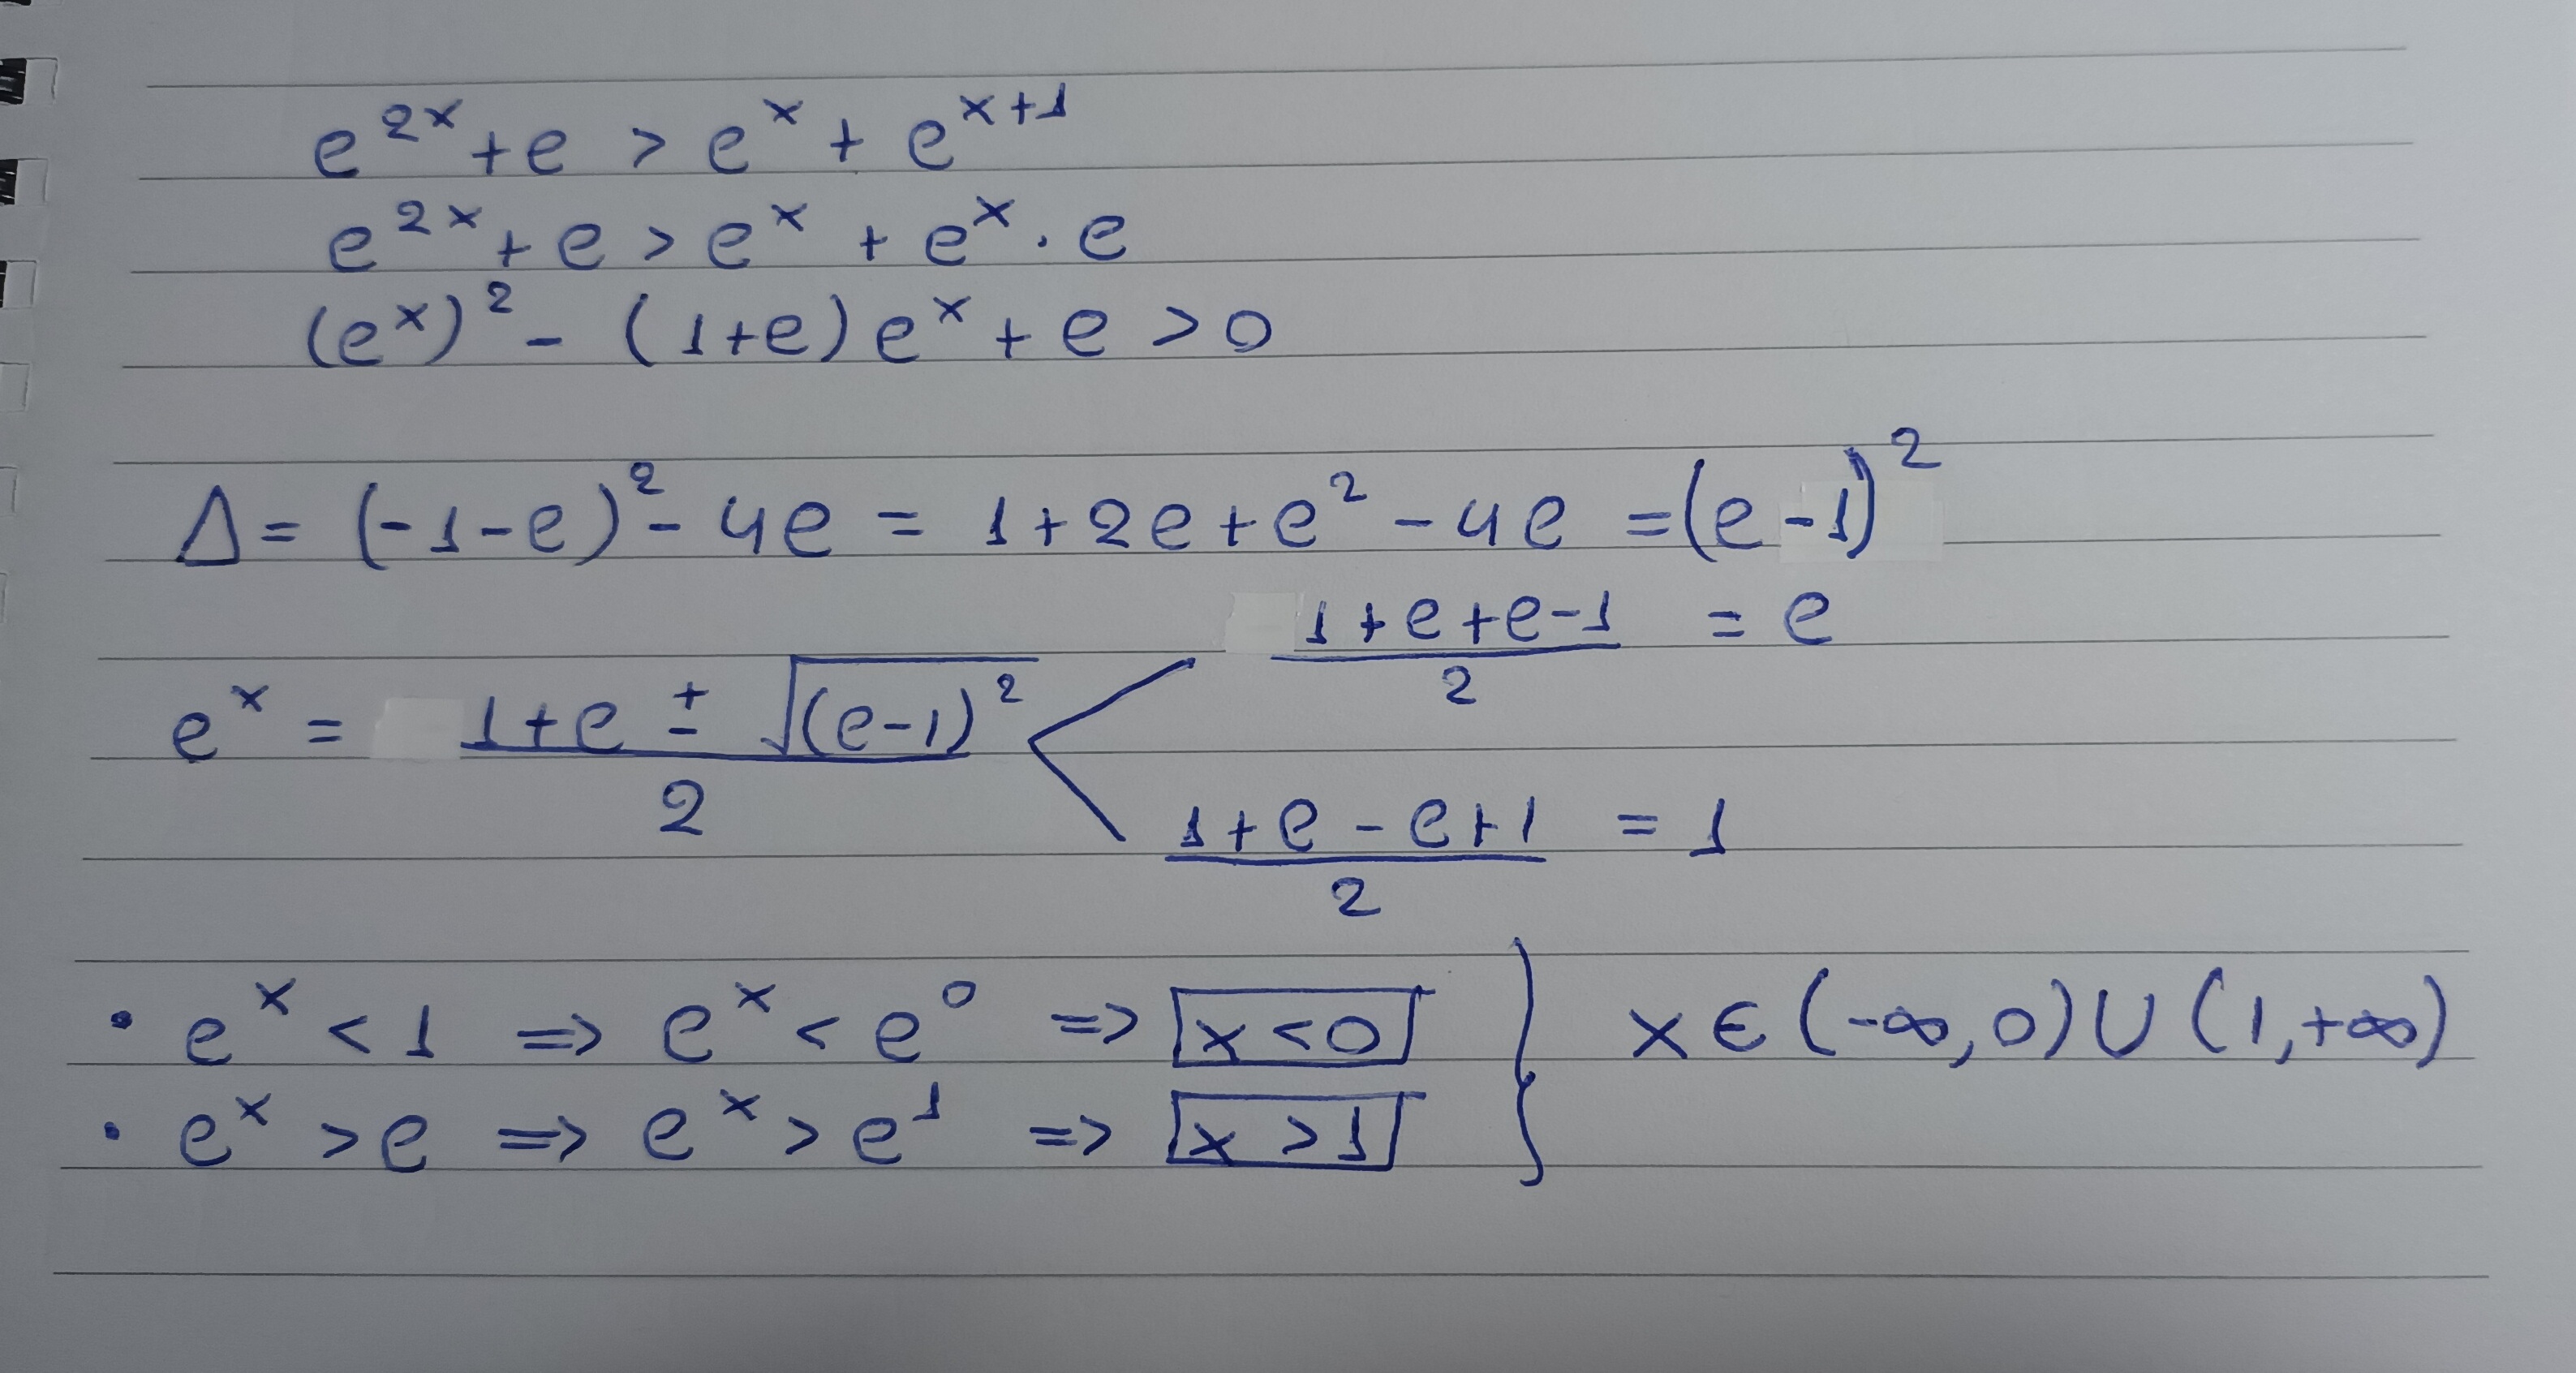 e^{2x} + e > e^x + e^{x+1}
e^{2x} + e > e^x + e^x · e
(e^x)^2 - (1+e) e^x + e > 0
Δ = (-1-e)^2 - 4e = 1 + 2e + e^2 - 4e = (e-1)^2
e^x = \frac{1+e ± \sqrt{(e-1)^2}}{2}
\frac{1+e+e-1}{2} = e
\frac{1+e-e+1}{2} = 1
• e^x < 1 => e^x < e^0 => x < 0 } x ∈ (-∞, 0) ∪ (1, +∞)
• e^x > e => e^x > e^1 => x > 1